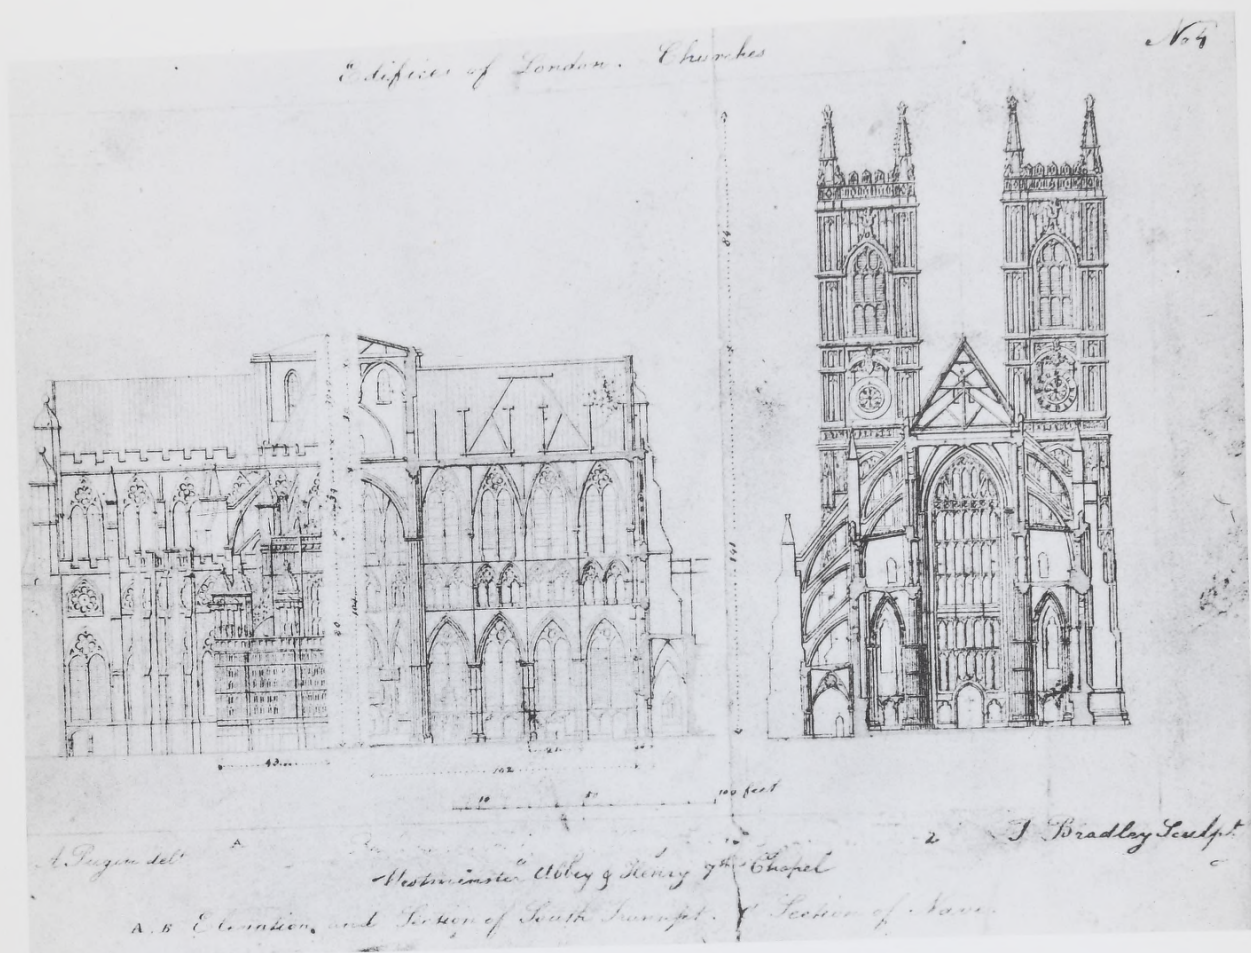 Edifices of London. Churches
No 4
84
141
104
43
102
10
100 feet
A
2
A Pugin delt
J Bradley Sculpt
Westminster Abbey & Henry 7th Chapel
A. B Elevation and Section of South Transept. C Section of Nave